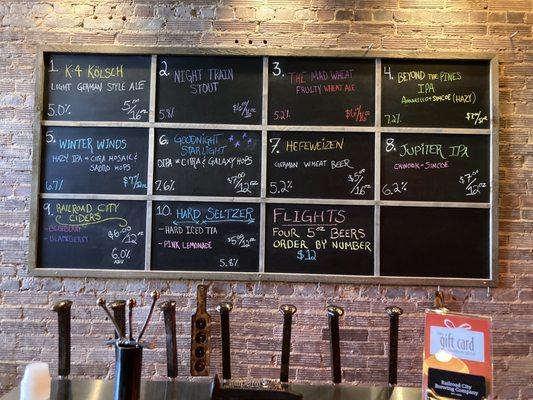 1.
K-4 KÖLSCH
LIGHT GERMAN STYLE ALE
5.0%
5.00/16oz
2.
NIGHT TRAIN
STOUT
5.8%
$6/16oz
3.
THE MAD WHEAT
FRUITY WHEAT ALE
5.2%
$6/16oz
4.
BEYOND THE PINES
IPA
AMARILLO + SIMCOE (HAZY)
7.2%
5.
WINTER WINDS
HAZY IPA w CITRA MOSAIC &
SABRO HOPS
6.7%
6.
GOODNIGHT
STARLIGHT
DIPA w CITRA & GALAXY HOPS
7.6%
7.
HEFEWEIZEN
GERMAN WHEAT BEER
5.2%
8.
JUPITER IPA
CHINOOK-SIMCOE
6.2%
9.
RAILROAD CITY
CIDERS
- BLUEBERRY
- BLACKBERRY
6.0%
ABV
10.
HARD SELTZER
- HARD ICED TEA
- PINK LEMONADE
5.8%
FLIGHTS
FOUR 5oz BEERS
ORDER BY NUMBER
$12
gift card
Railroad City
Brewing Company